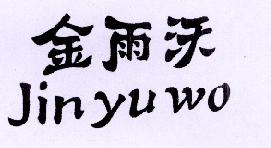 金雨沃
Jinyuwo